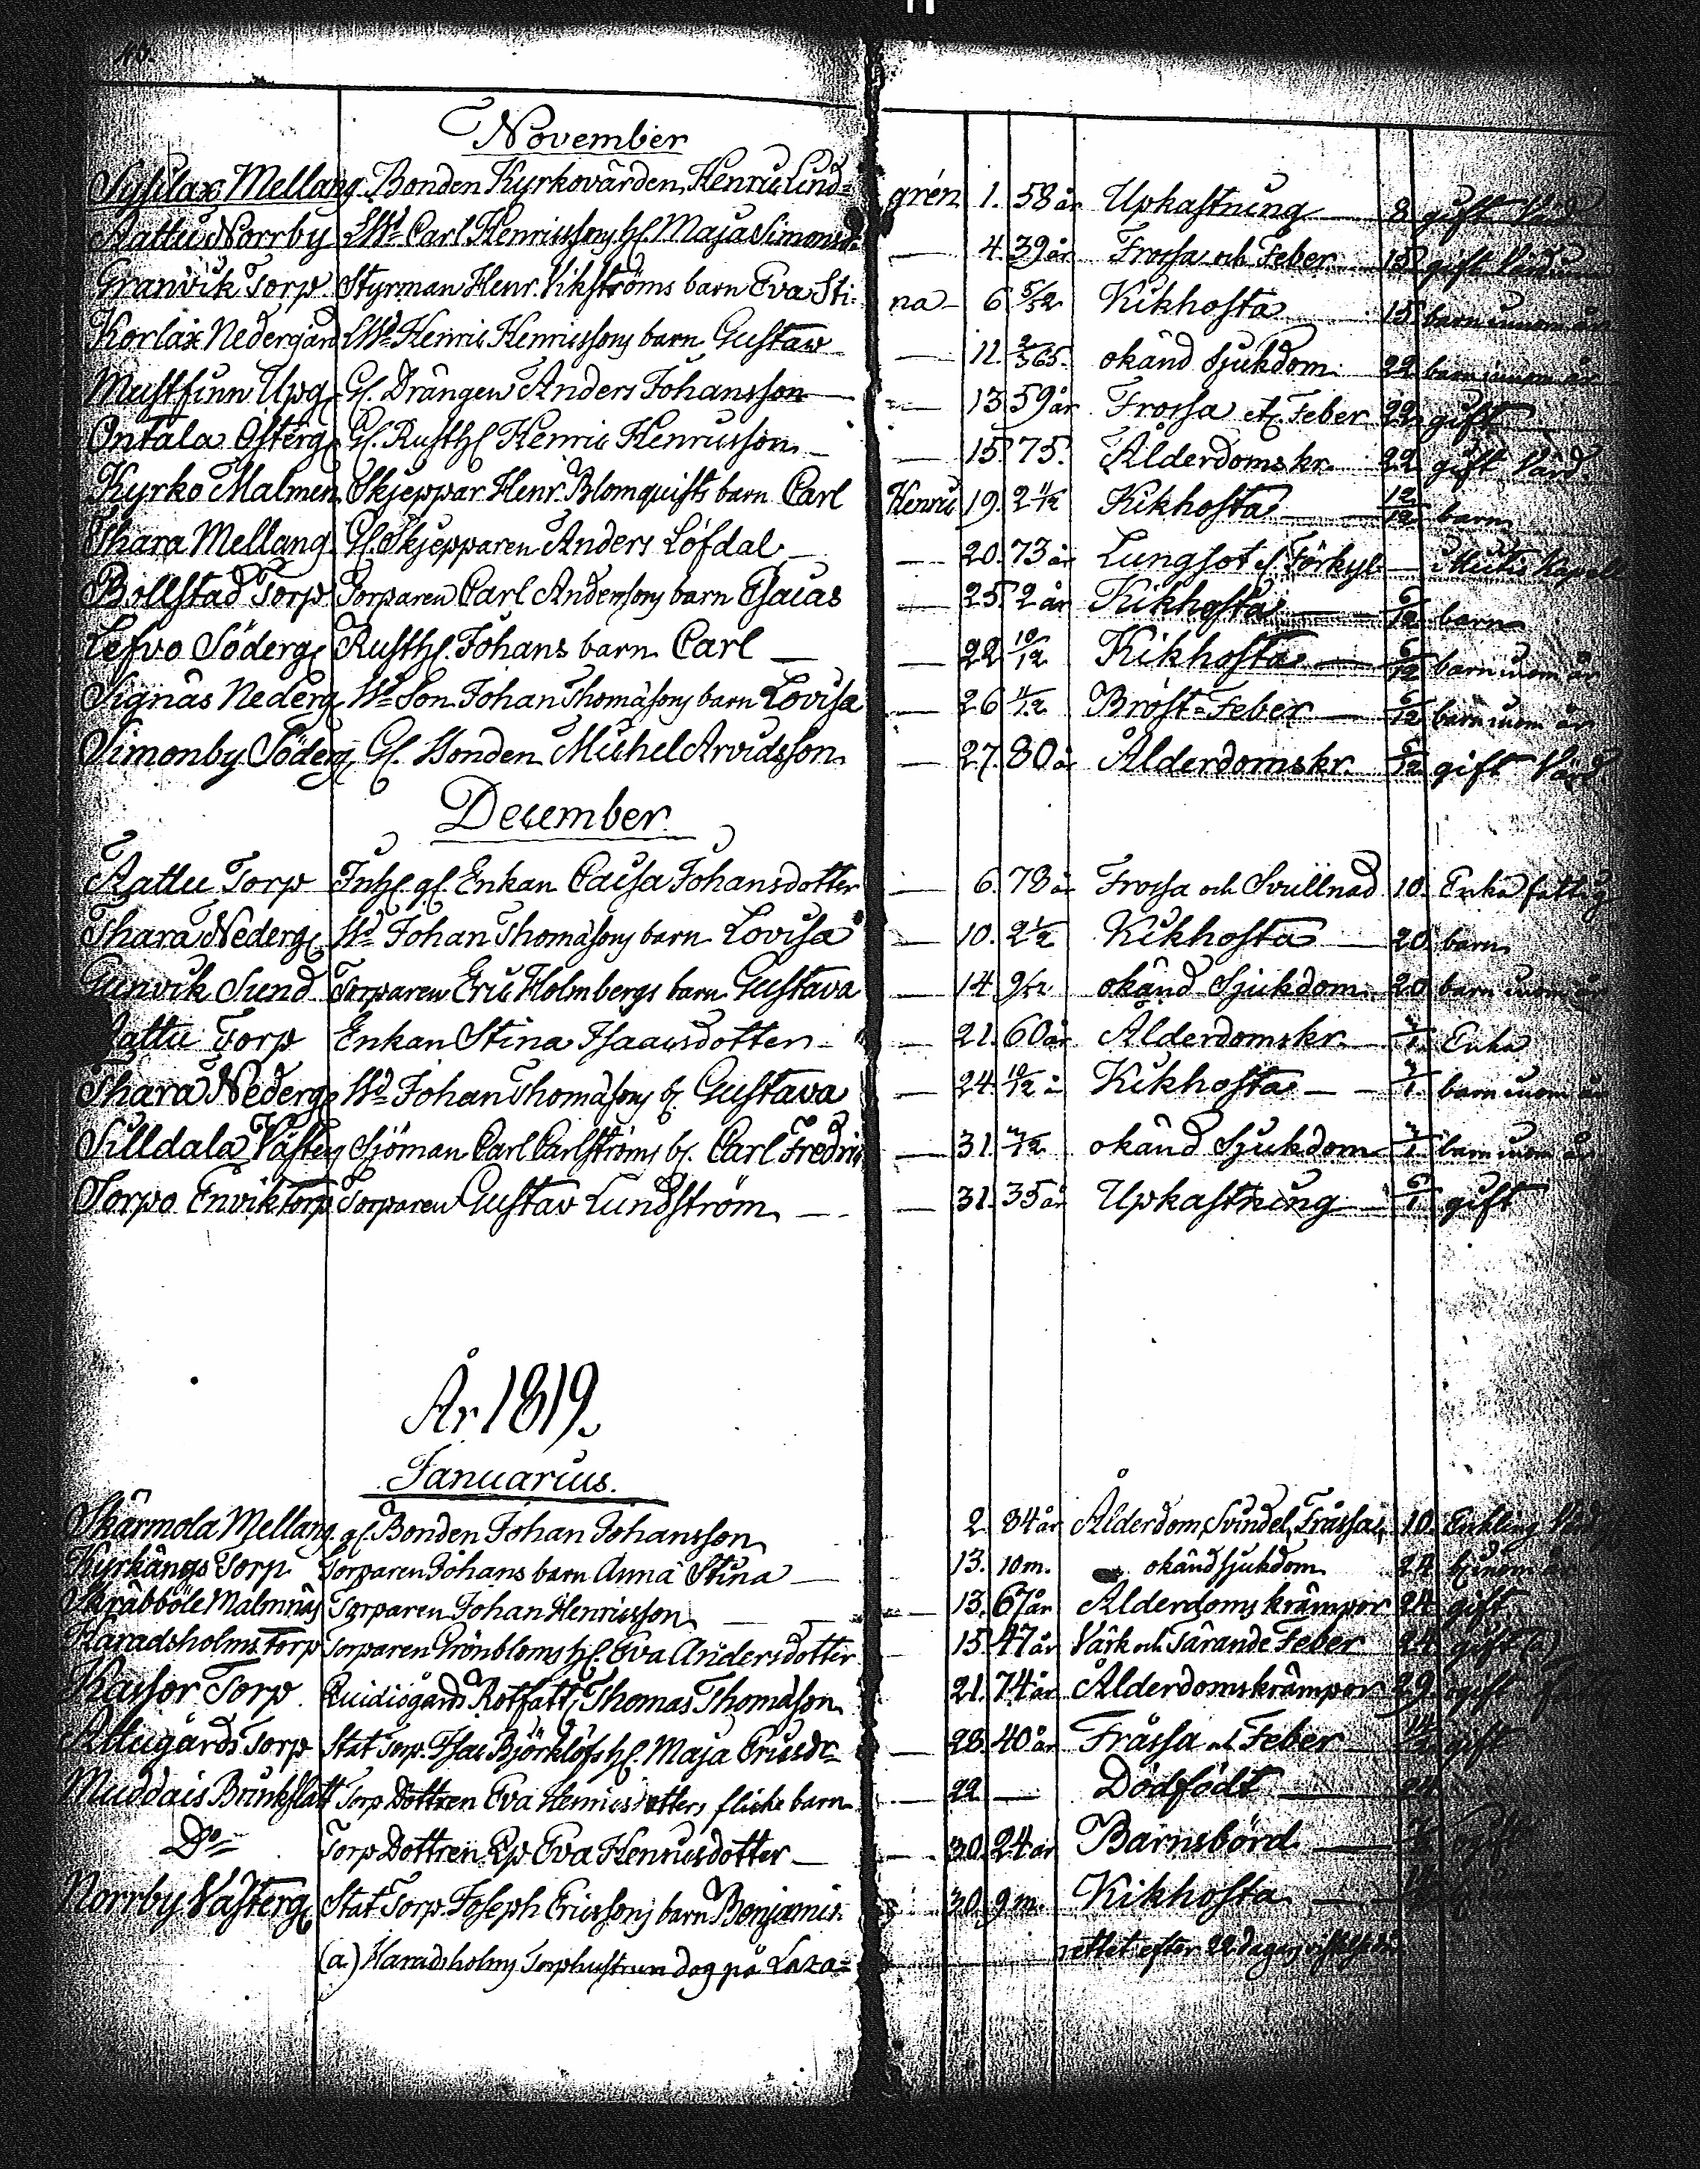 November
Sysilax Mellang. Bonden Kyrkovärden Henric Lind= grén 1. 58 år Upkastning 8. gift Värd
Rattu Norrby Carl Henricssons H. Maja Simonsd. — 4. 39 år Frossa och Feber 15 gift
Granvik Torp Styrman Henr. Vikströms barn Eva Sti- na — 6 5/52 Kikhosta 15 barn inom år
Korlax Nedergård Henric Henricssons barn Gustaw — 11. 2/365. okänd Sjukdom. 22 barn inom år
Mustfinn Upg. Gl. Drängen Anders Johansson — 13 59 år Frossa etc. Feber 22 gift
Ontala Österg. Gl. Rusth. Henric Henricsson — 15. 75. Ålderdomskr. 22 gift Värd.
Kyrko Malmen Skjeppar Henr. Blomquists barn Carl Henric 19. 2 1/2 Kikhosta — 12/12 barn
Thara Mellang. Gl. Skjepparen Anders Löfdal — 20. 73 år Lungsot Förkyl —
Bollstad Torp Torparen Carl Andersons barn Esaias — 25. 2 år Kikhosta — 6/12 barn
Lefvo Söderg. Rusth. Johans barn Carl — 22 10/12 Kikhosta — 6/12 barn inom år
Signäs Nederg. Son Johan Thomæsons barn Lovisa — 26 4/12 Bröst=Feber — 6/12 barn inom år
Simonby Söderg. Gl. Bonden Michel Arvidsson — 27. 80 år Ålderdomskr. 6/12 gift Värd
December
Rattu Torp Inh. gl. Enkan Caisa Johansdotter — 6. 78 år Frossa och Svullnad 10. Enka fattig
Thara Nederg. Johan Thomæsons barn Lovisa — 10. 2 1/2 Kikhosta — 20. barn
Gunvik Sund Torparen Eric Holmbergs barn Gustava — 14 9/52 okänd Sjukdom. 20 barn inom år
Rattu Torp Enkan Stina Isaacsdotter — 21. 60 år Ålderdomskr. — Enka
Thara Nederg. Johan Thomæsons b. Gustava — 24. 10/12 Kikhosta — barn inom år
Silldala Västerg. Sjöman Carl Carlströms b. Carl Fredric — 31. okänd Sjukdom barn inom år
Torpo Envik Torp Torparen Gustav Lundström — 31. 35 år Upkastning 6/1 gift
År 1819.
Januarius.
Skärmola Mellang. gl. Bonden Johan Johansson 2. 84 år Ålderdom, Svindel, Fråssa 10. Enkling
Kyrkängs Torp Torparen Johans barn Anna Stina — 13. 10 m. okänd sjukdom 24 inom år
Skräbböle Malmnäs Torparen Johan Henricsson — 13. 67 år Ålderdoms krämpor 24 gift
Haradsholms Torp Torparen Grönbloms H. Eva Andersdotter 15. 47 år Värk och Tärande Feber 24. gift (a)
Kassor Torp Rotfatt. Thomas Thomæson 21. 74 år Ålderdomskrämpor 29. ogift
Attugårds Torp Stat Torp. Isac Björklöfs H. Maja Ericsdr — 28. 40 år Fråssa Feber gift
Muddais Brinkslätt Torp Dottren Eva Henricsdotters flicke barn — 22 — Dödfödt
Do Torp Dottren Eva Henricsdotter — 30. 24 år Barnsbörd — ogift
Norrby Västerg. Stat Torp Joseph Ericssons barn Benjamin 30. 9 m. Kikhosta
(a) Haradsholms Torphustrun dog på Laza= rettet efter 22 dagars